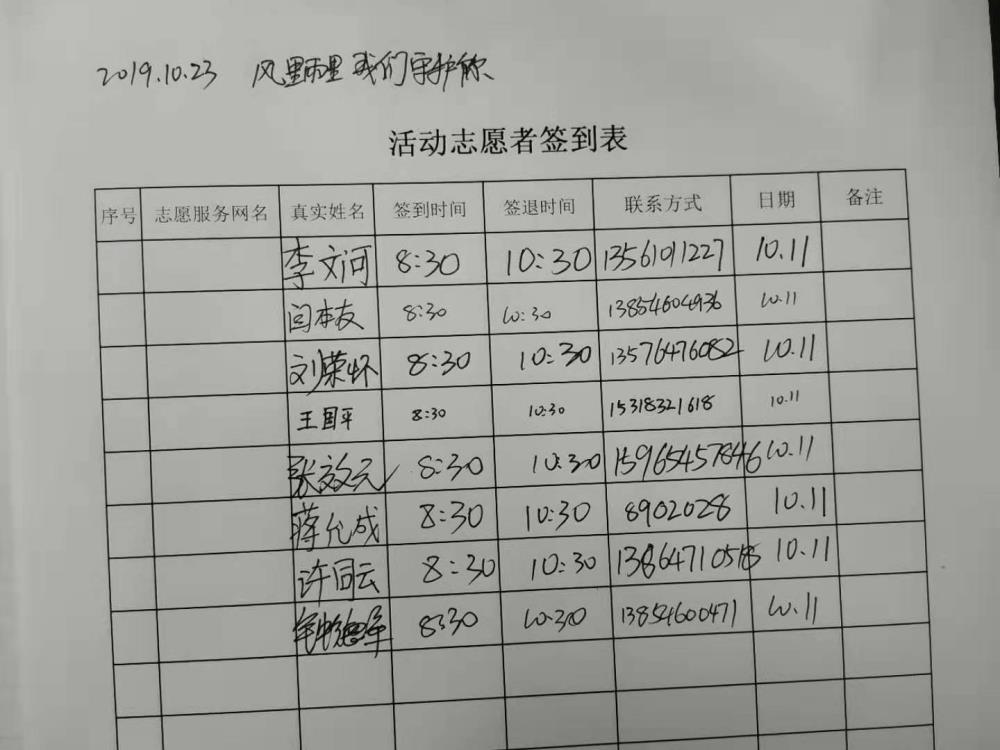 2019.10.23 风里雨里 我们守护你
活动志愿者签到表
序号 志愿服务网名 真实姓名 签到时间 签退时间 联系方式 日期 备注
李文河 8:30 10:30 13561011227 10.11
闫本友 8:30 10:30 13854604936 10.11
刘荣怀 8:30 10:30 13576476082 10.11
王国平 8:30 10:30 15318321618 10.11
张效元 8:30 10:30 15965457846 10.11
蒋允成 8:30 10:30 8902028 10.11
许同云 8:30 10:30 10.11
8:30 10:30 13854600471 10.11